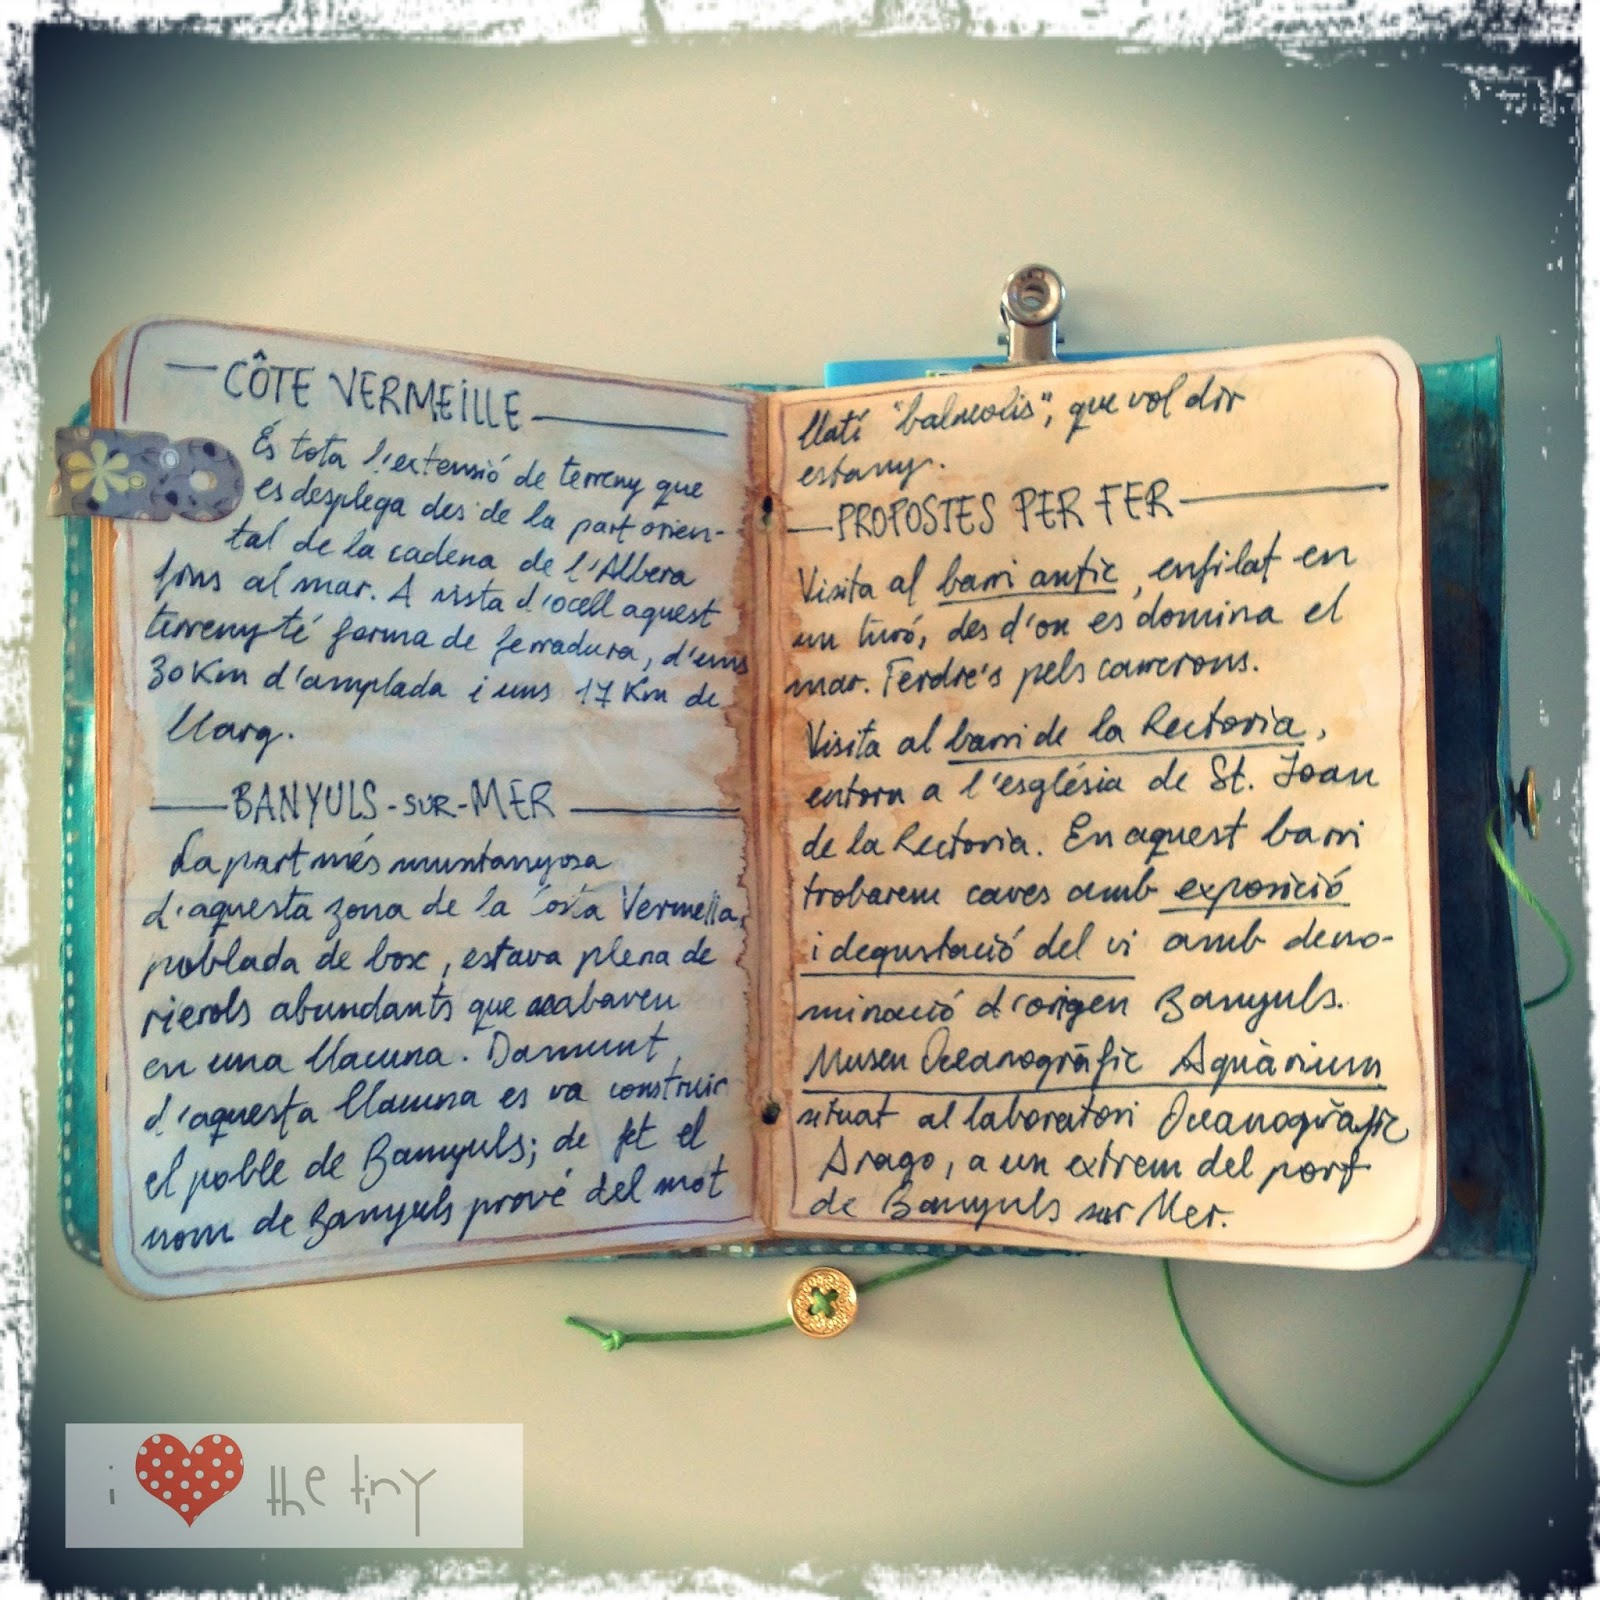 CÔTE VERMEILLE
És tota l'extensió de terreny que
es desplega des de la part orien-
tal de la cadena de l'Albera
fins al mar. A vista d'ocell aquest
terreny té forma de ferradura, d'uns
30 Km d'amplada i uns 17 Km de
llarg.
BANYULS-SUR-MER
La part més muntanyosa
d'aquesta zona de la Costa Vermella,
poblada de bosc, estava plena de
rierols abundants que acabaven
en una llacuna. Damunt
d'aquesta llacuna es va construir
el poble de Banyuls; de fet el
nom de Banyuls prové del mot
llatí "balneolis", que vol dir
estany.
PROPOSTES PER FER
Visita al barri antic, enfilat en
un turó, des d'on es domina el
mar. Perdre's pels carrerons.
Visita al barri de la Rectoria,
entorn a l'església de St. Joan
de la Rectoria. En aquest barri
trobarem caves amb exposició
i degustació del vi amb deno-
minació d'origen Banyuls.
Museu Oceanogràfic Aquàrium
situat al laboratori Oceanogràfic
Arago, a un extrem del port
de Banyuls sur Mer.
i the tiny